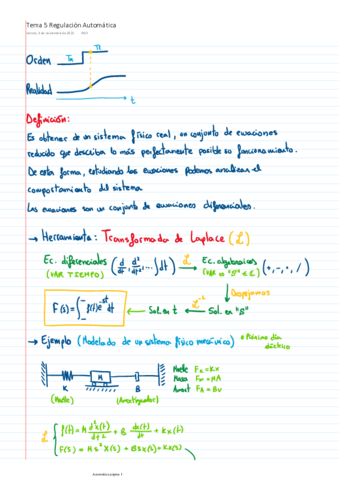 Tema 5 Regulación Automática
Orden
Realidad
t
Definición:
Es obtener de un sistema físico real, un conjunto de ecuaciones
reducido que describa lo más perfectamente posible su funcionamiento.
De esta forma, estudiando las ecuaciones podemos analizar el
comportamiento del sistema
Las ecuaciones son un conjunto de ecuaciones diferenciales.
→ Herramienta: Transformada de Laplace (L)
Ec. diferenciales (d/dt, d²/dt², ... ∫dt) L→ Ec. algebraicas (+, -, ·, /)
(VAR TIEMPO) (VAR = "S" ∈ C)
Despejamos
F(s) = ∫ f(t)e^-st dt ← Sol. en t L^-1 ← Sol. en "S"
→ Ejemplo (Modelado de un sistema físico mecánico)
K M B
(Muelle) (Amortiguador)
Muelle Fk = Kx
Masa Fm = MA
Amort FA = Bv
L { f(t) = M d²x(t)/dt² + B dx(t)/dt + Kx(t)
F(s) = Ms² X(s) + BSX(s) + KX(s)